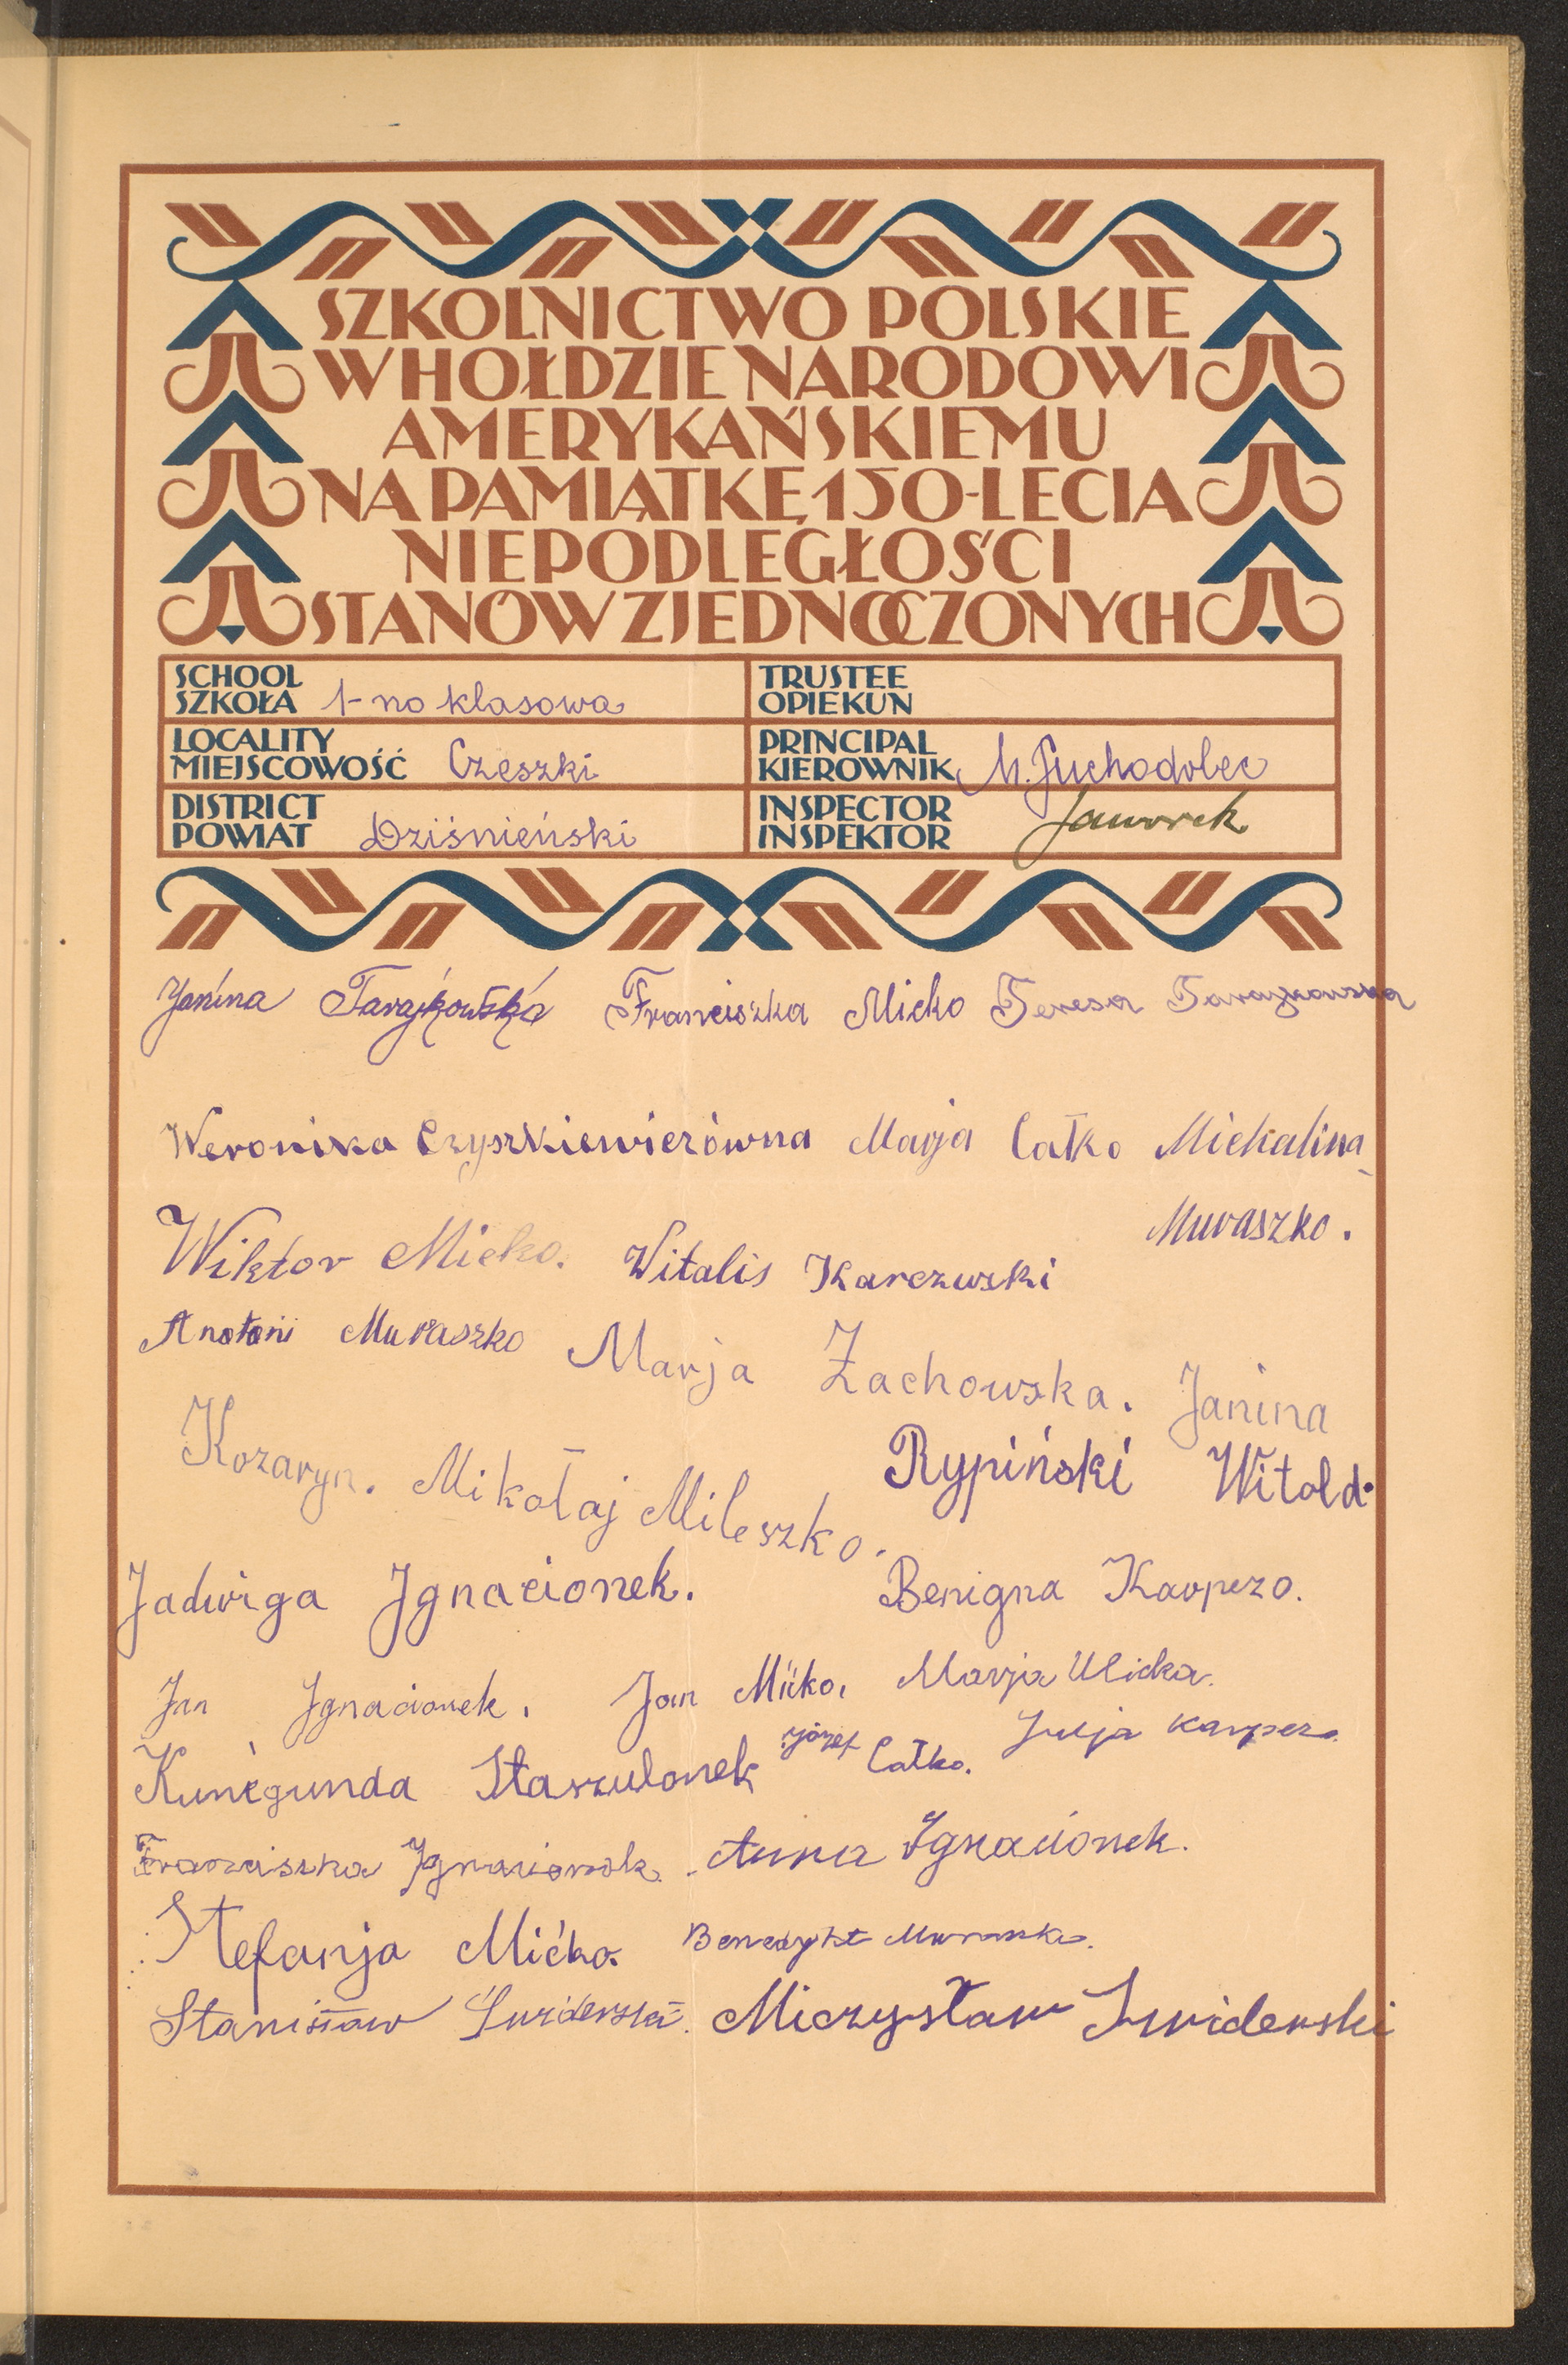 SZKOLNICTWO POLSKIE
W HOŁDZIE NARODOWI
AMERYKAŃSKIEMU
NA PAMIĄTKĘ 150-LECIA
NIEPODLEGŁOŚCI
STANÓW ZJEDNOCZONYCH
SCHOOL
SZKOŁA 1-no klasowa
TRUSTEE
OPIEKUN
LOCALITY
MIEJSCOWOŚĆ Czeszki
PRINCIPAL
KIEROWNIK M. Suchodolec
DISTRICT
POWIAT Dziśnieński
INSPECTOR
INSPEKTOR Jaworek
Janina Tarajkowska Franciszka Micko Teresa Tarajkowska
Weronika Czyszkiewiczówna Marja Całko Michalina
Muraszko.
Wiktor Micko. Witalis Karczwski
Anotoni Muraszko Marja Żachowska. Janina
Kozaryn. Mikołaj Mileszko. Rypiński Witold.
Jadwiga Ignacionek. Benigna Karpezo.
Jan Ignacionek. Jan Mićko. Marja Ulicka.
Kunegunda Staszulonek Józef Całko. Julja Karpezo
Franciszka Ignacionek. Anna Ignacionek.
Stefanja Mićko. Benedykt Muraszko.
Stanisław Świderski. Mieczysław Swiderski